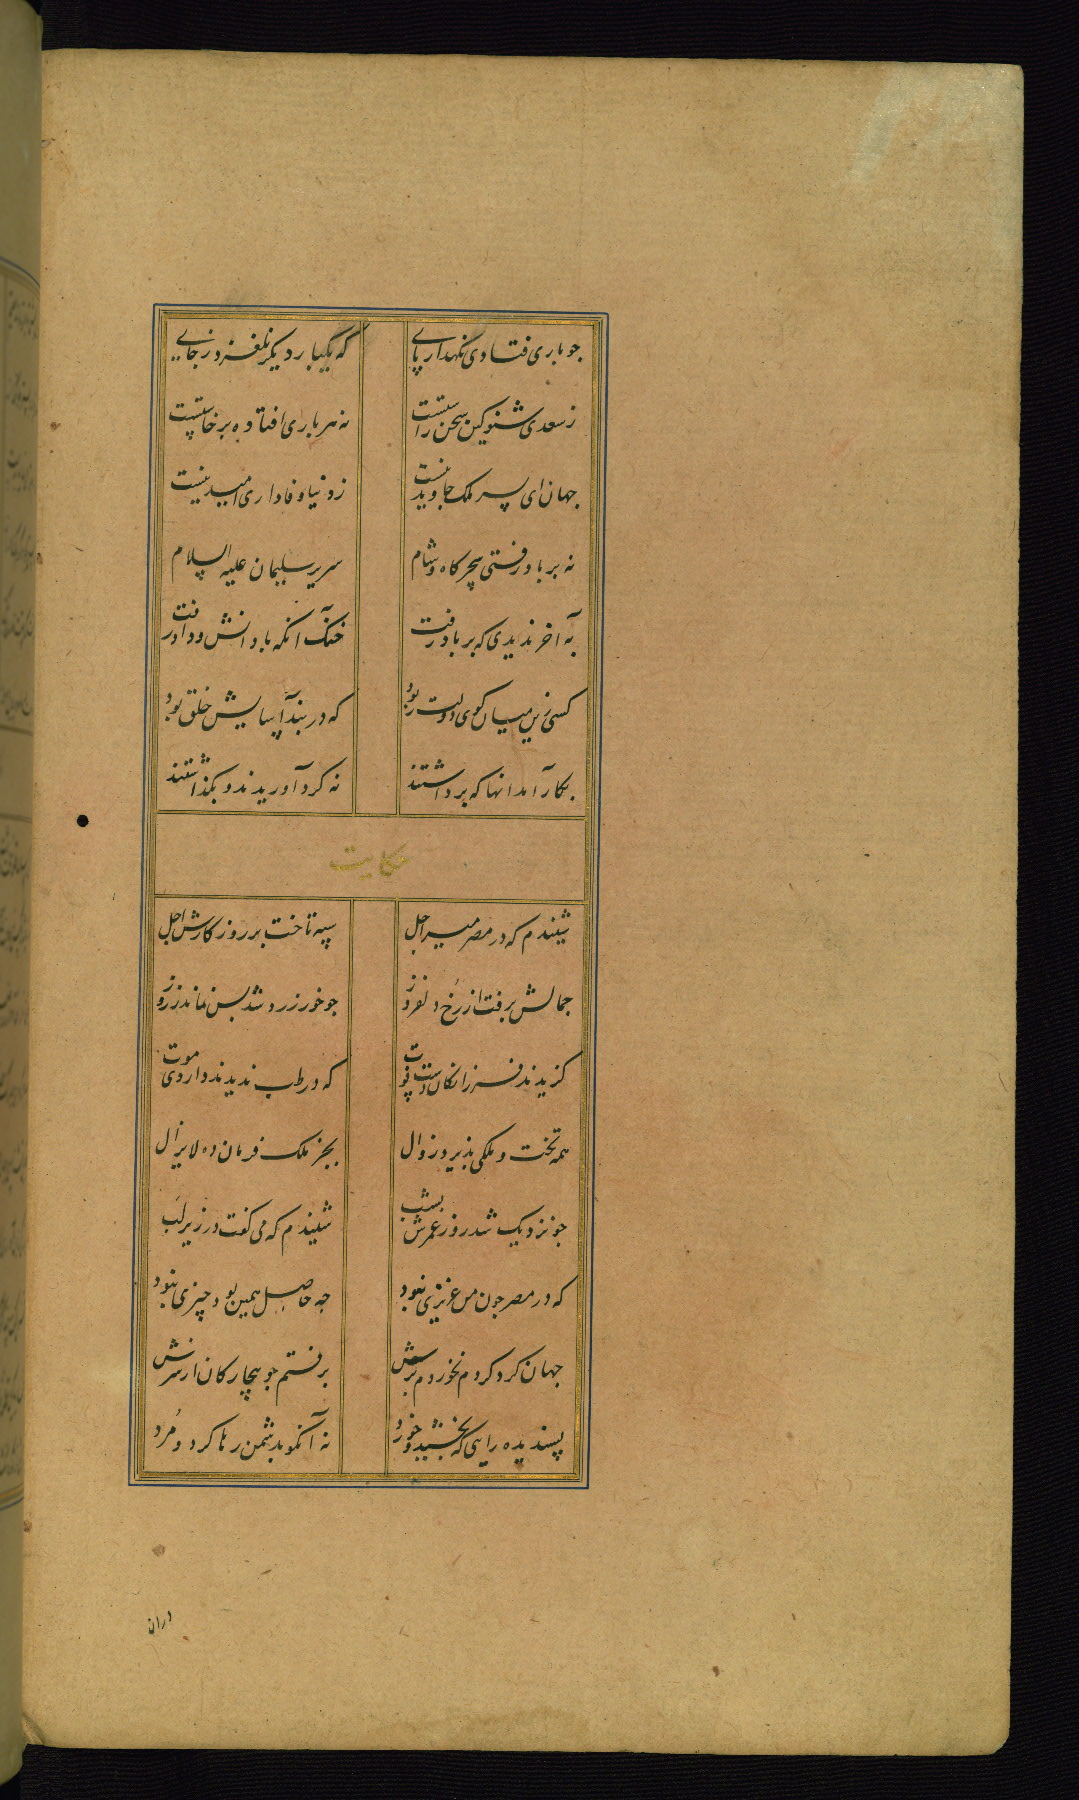 جو باری فتادی نگهدار پای که یکبار دیکر نلغزد ز جایی
ز سعدی شنو کین سخن راستست نه هر باری افتاده برخاستست
جهان ای پسر ملک جاوید نیست ز دنیا وفاداری امید نیست
نه بر باد رفتی سحرکاه و شام سریر سلیمان علیه السلام
به آخر ندیدی که بر باد رفت خنک آنکه با دانش و داد رفت
کسی زین میان کوی دولت ربود که در بند آسایش خلق بود
بکار آمد انها که برداشتند نه کرد آوریدند و بکذاشتند
حکایت
شنیدم که در مصر میر اجل سپه تاخت بر روزکارش اجل
جمالش برفت از رخ دلفروز جو خور زرد شد بس نماند ز روز
کزیدند فرزانکان دست فوت که در طب ندیدند داروی موت
همه تخت و ملکی پذیرد زوال بجز ملک فرمان ده لایزال
جو نزدیک شد روز عمرش بشب شنیدم که می کفت در زیر لب
که در مصر جون من عزیزی نبود جه حاصل همین بود چیزی نبود
جهان کرد کردم نخوردم برش برفتم جو بیچارکان از سرش
پسندیده رایی که بخشید و خورد نه آنکو بدشمن رها کرد و مُرد
دران